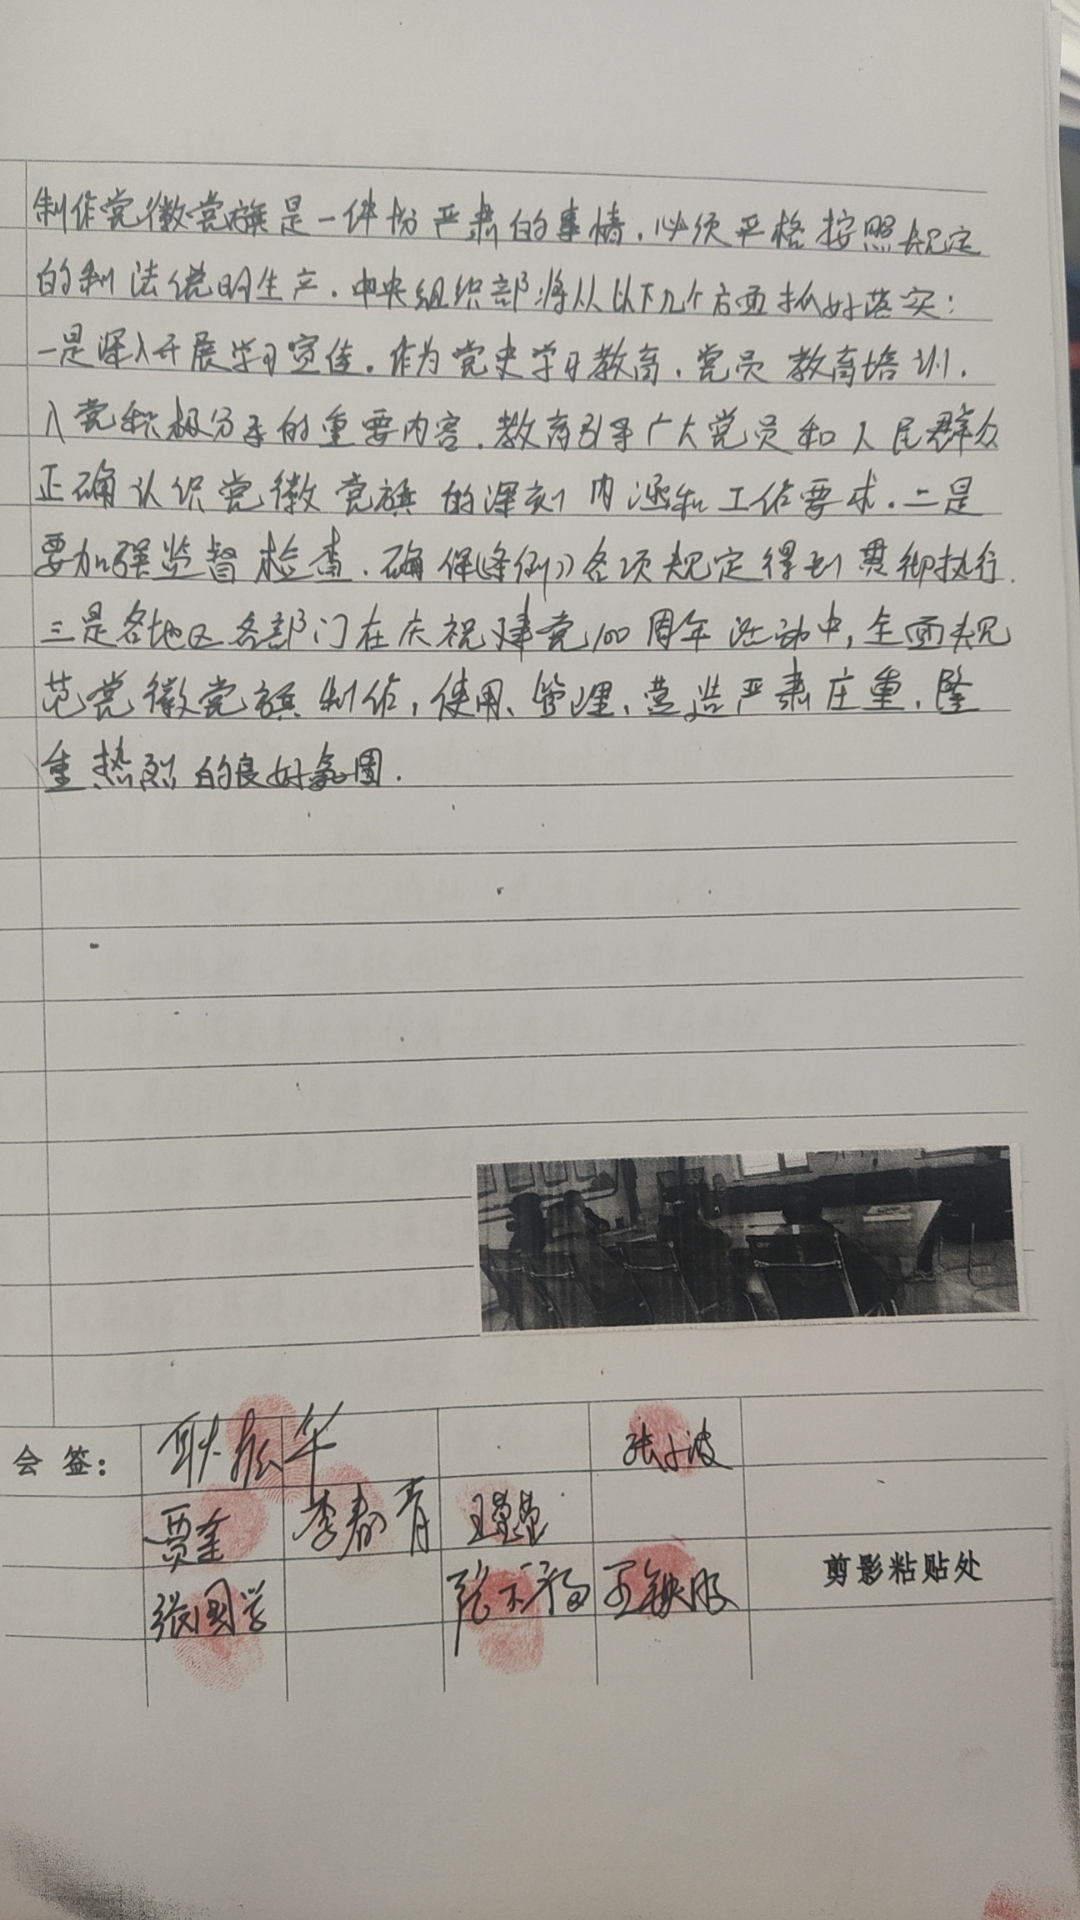 制作党徽党旗是一件份严肃的事情,必须严格按照规定
的制法说明生产.中央组织部将从以下几个方面抓好落实:
一是深入开展学习宣传。作为党史学习教育、党员教育培训、
入党积极分子的重要内容.教育引导广大党员和人民群众
正确认识党徽党旗的深刻内涵和工作要求.二是
要加强监督检查.确保《条例》各项规定得到贯彻执行.
三是各地区各部门在庆祝建党100周年活动中,全面规
范党徽党旗制作,使用、管理、营造严肃庄重,隆
重热烈的良好氛围.
会 签: 耿振华 张小波
贾奎 李春青
张国学 王铁成 剪影粘贴处